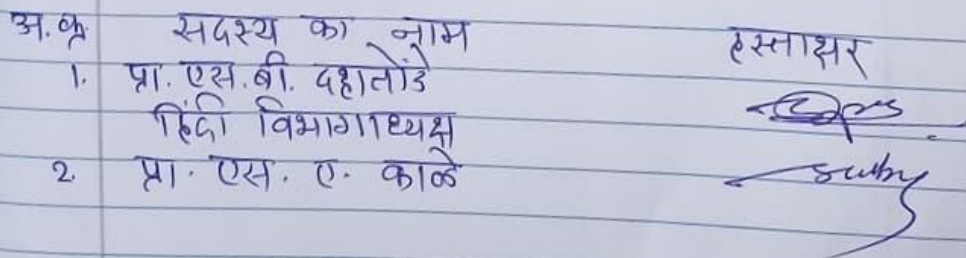 अ.क्र. सदस्य का नाम हस्ताक्षर
1. प्रा. एस.बी. दहातोंडे
हिंदी विभागाध्यक्ष
2. प्रा. एस. ए. काळे